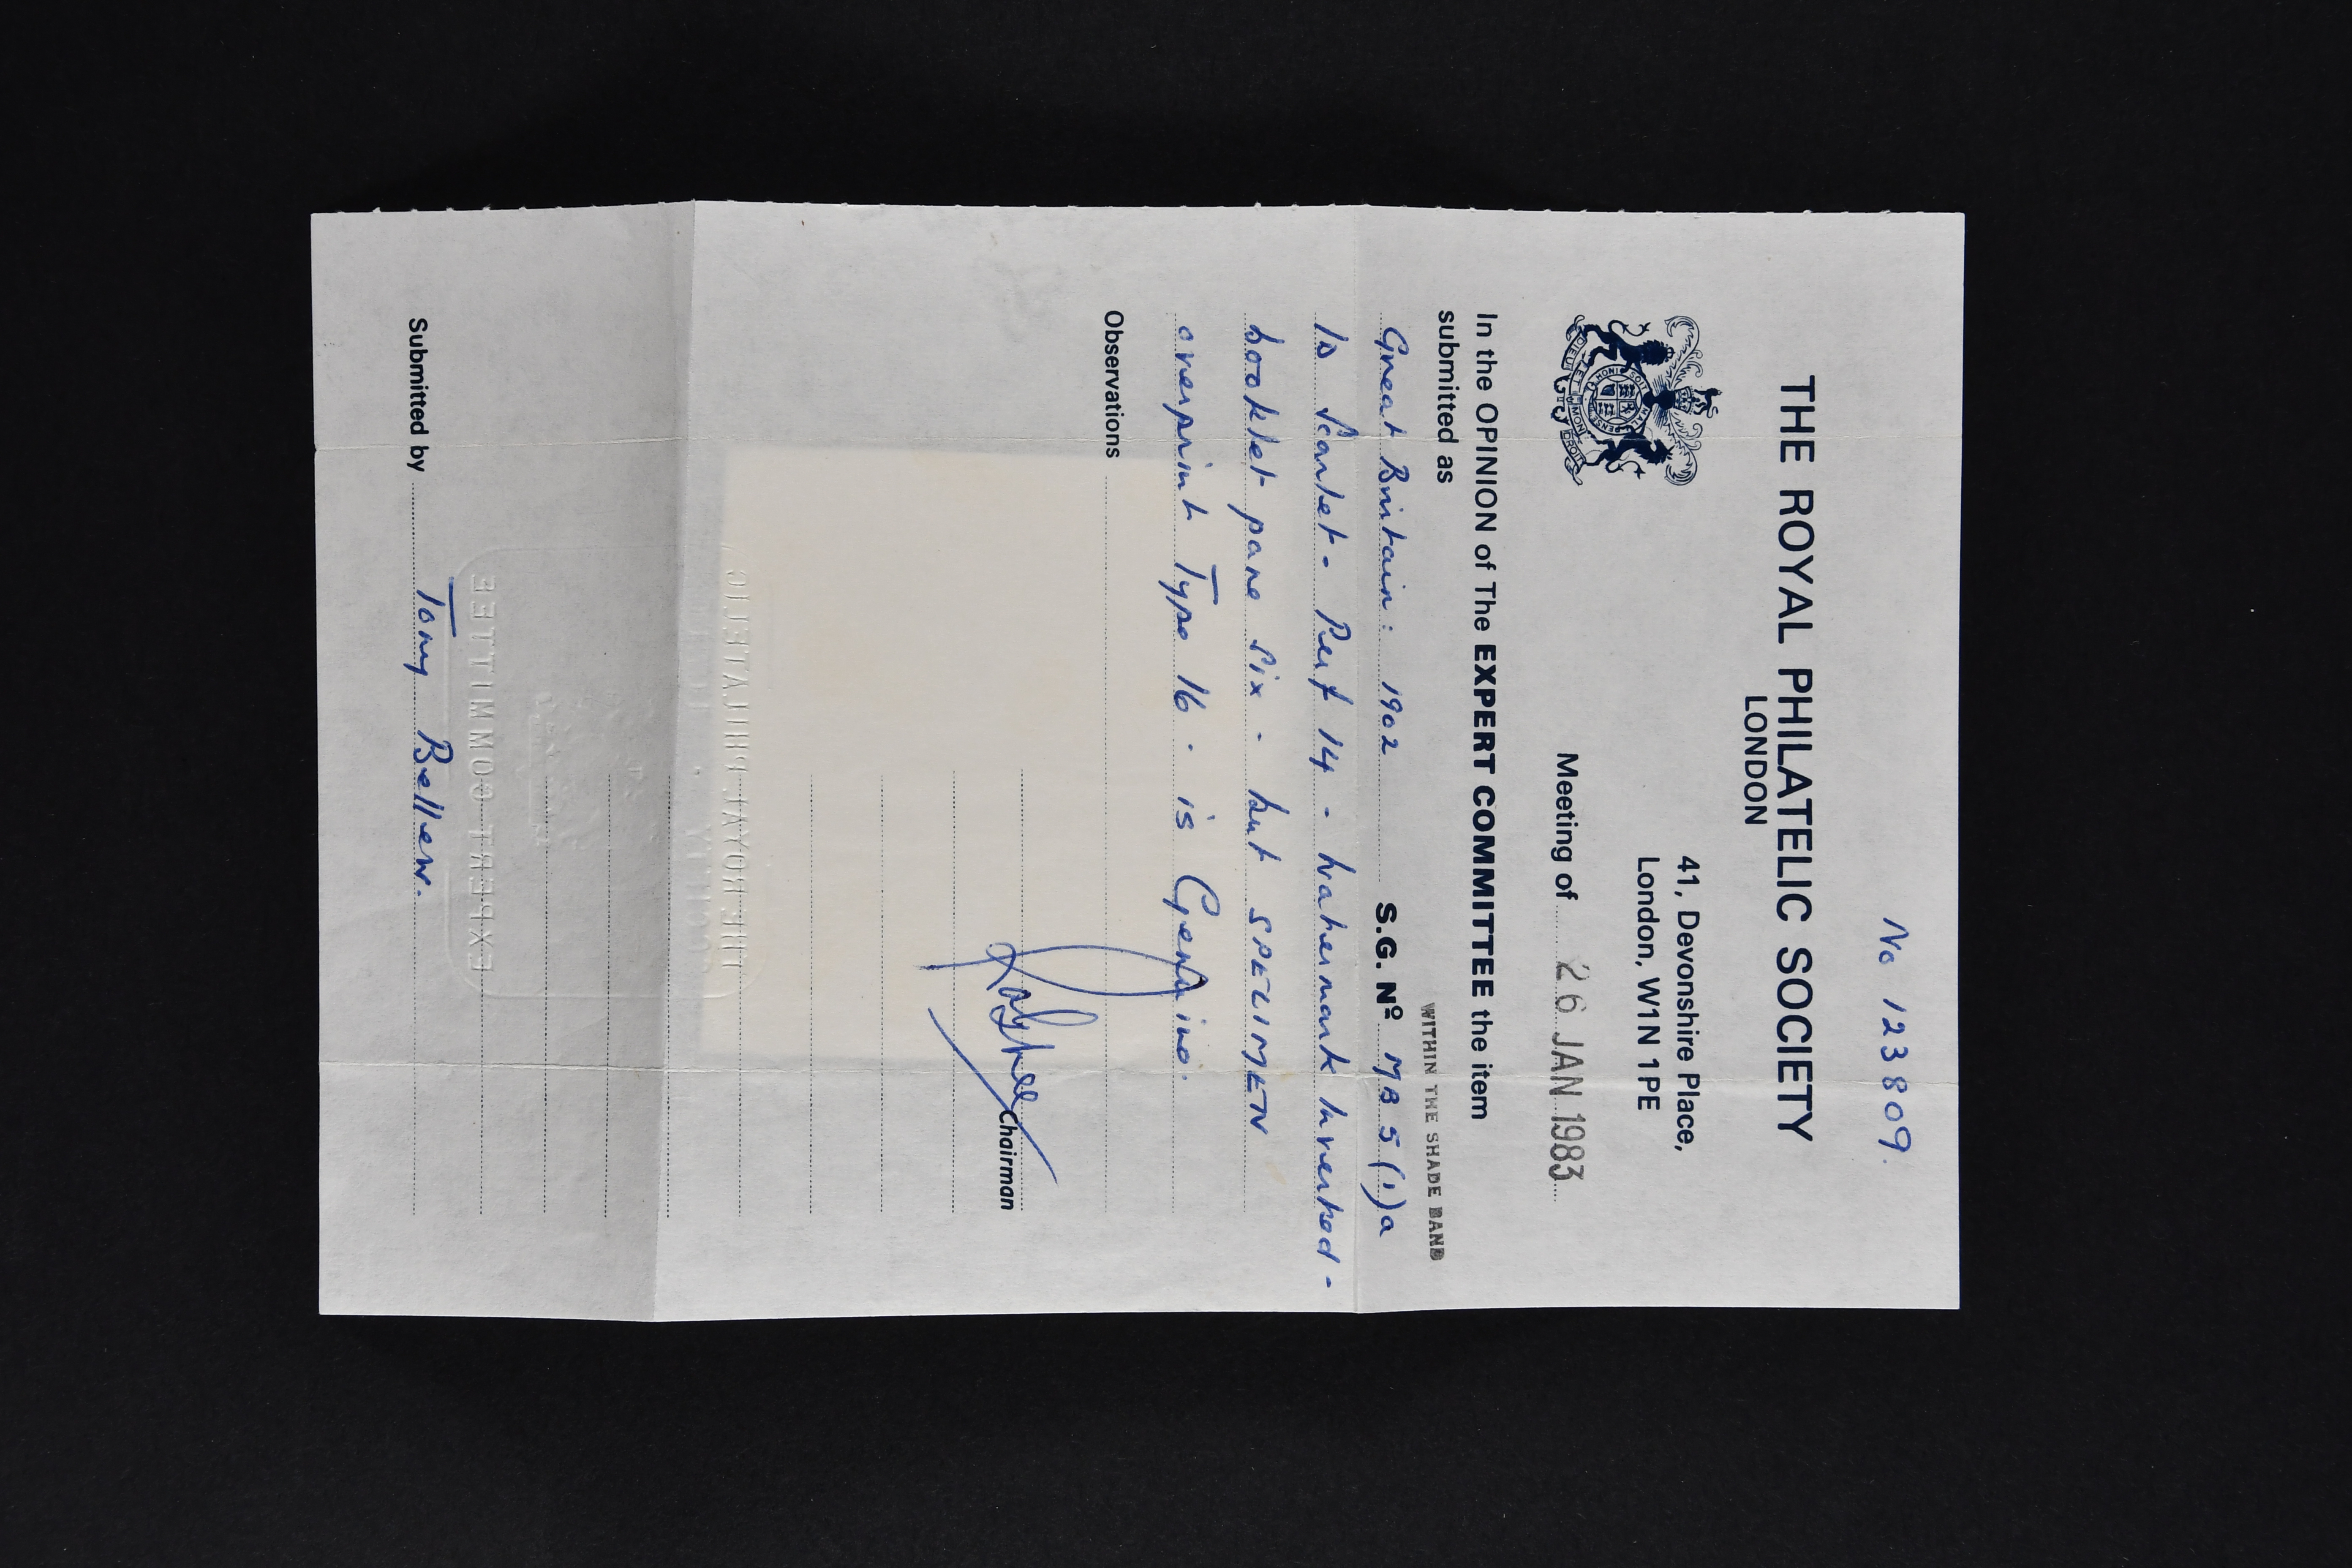 No 123809.
THE ROYAL PHILATELIC SOCIETY
LONDON
41, Devonshire Place,
London, W1N 1PE
HONI SOIT QUI MAL Y PENSE
DIEU ET MON DROIT
Meeting of 26 JAN 1983
In the OPINION of The EXPERT COMMITTEE the item
submitted as
WITHIN THE SHADE BAND
Great Britain: 1902 S.G. Nº MB 5 (1)a
1d Scarlet - Perf 14 - Watermark Inverted -
booklet pane six - but SPECIMEN
overprint Type 16 - is Genuine.
Observations
Chairman
THE ROYAL PHILATELIC
SOCIETY
EXPERT COMMITTEE
Submitted by Tony Bellew.